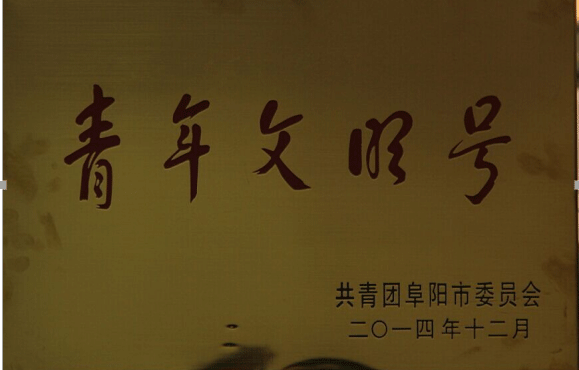 青年文明号
共青团阜阳市委员会
二〇一四年十二月